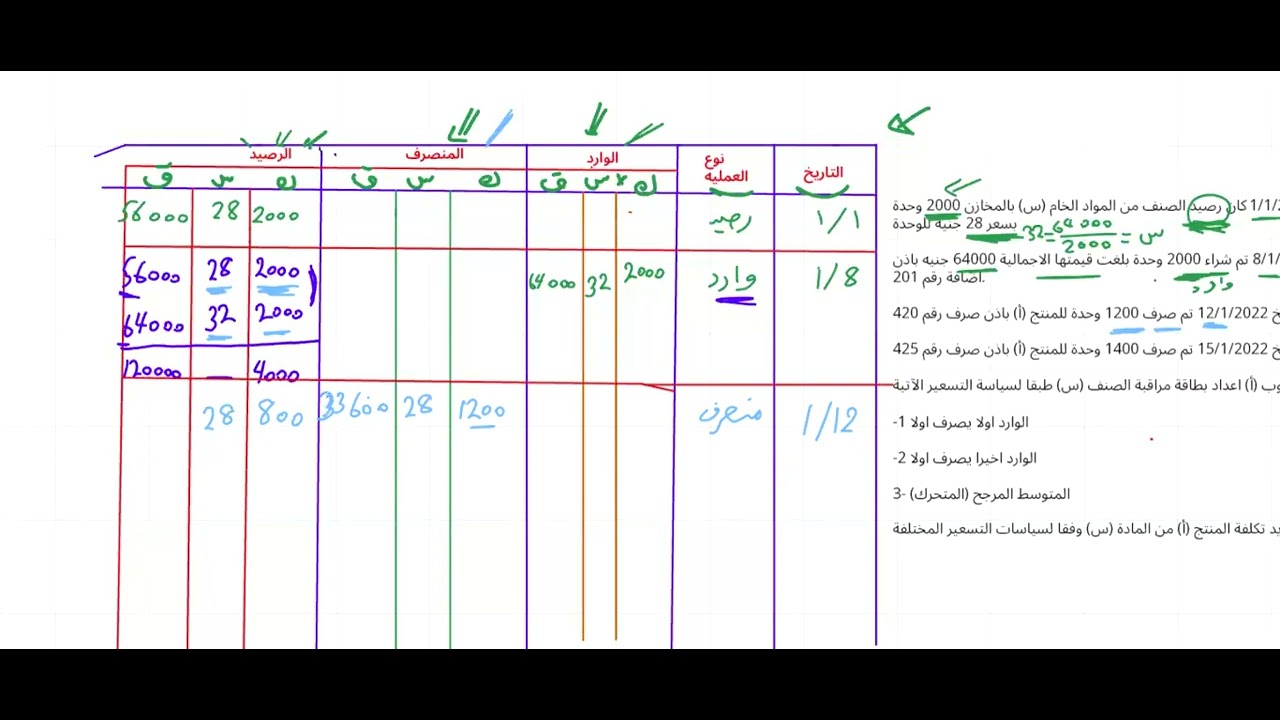 التاريخ نوع العملية الوارد المنصرف الرصيد
ك س ق ك س ق ك س ق
1/1 رصيد 2000 28 56000
1/8 وارد 2000 32 64000 2000 28 56000
2000 32 64000
4000 — 120000
1/12 منصرف 1200 28 33600 800 28
كان رصيد الصنف من المواد الخام (س) بالمخازن 2000 وحدة
بسعر 28 جنيه للوحدة
س = 64000 / 2000 = 32
8/1/ تم شراء 2000 وحدة بلغت قيمتها الاجمالية 64000 جنيه باذن
اضافة رقم 201.
وارد
12/1/2022 تم صرف 1200 وحدة للمنتج (أ) باذن صرف رقم 420
15/1/2022 تم صرف 1400 وحدة للمنتج (أ) باذن صرف رقم 425
(أ) اعداد بطاقة مراقبة الصنف (س) طبقا لسياسة التسعير الآتية
1- الوارد اولا يصرف اولا
2- الوارد اخيرا يصرف اولا
3- المتوسط المرجح (المتحرك)
تكلفة المنتج (أ) من المادة (س) وفقا لسياسات التسعير المختلفة